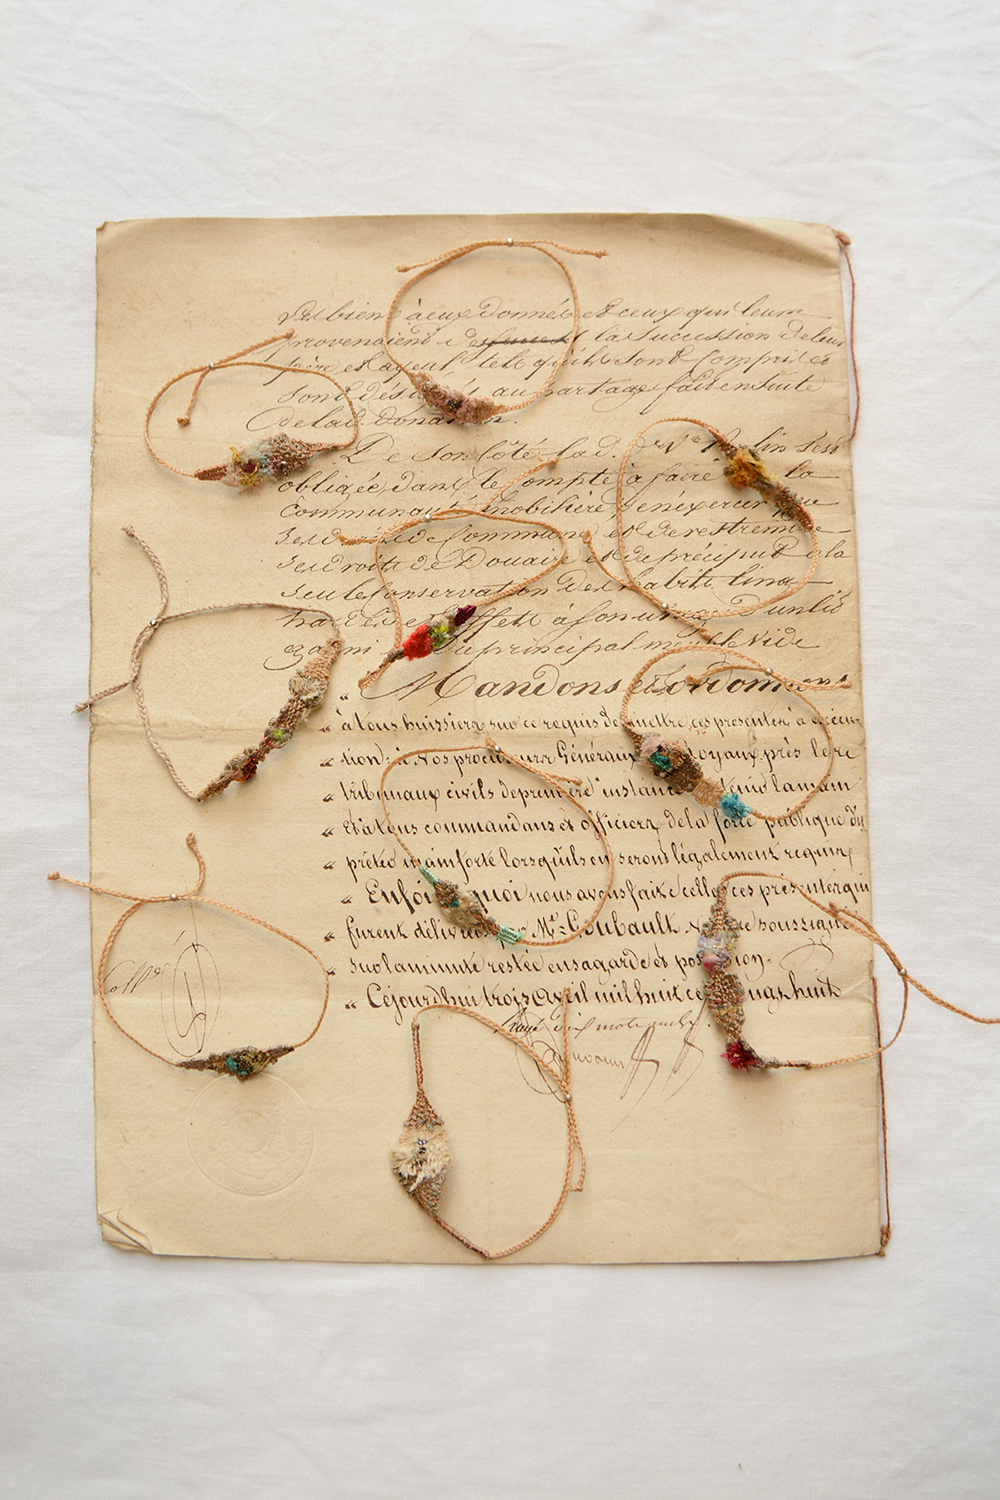 des biens à eux donnés et ceux qui leur
provenaient de la succession de leur
père et ayeul, tels qu'ils sont compris et
sont au partage fait ensuite
de lad.
De son côté lad. s'est
obligée, dans le compte à faire la
communauté mobilière, à n'exercer
ses de Commune et de restreindre
ses droits de Douaire et de préciput à la
seule conservation des habits linge
hardes et effets à son usage d'un lit
garni principal meuble vide
" Mandons et ordonnons
" à tous huissiers sur ce requis de mettre ces présentes à exécu-
" tion: à nos procureurs Généraux Royaux près les
" tribunaux civils de première instance tenir la main
" Et à tous commandans et officiers de la force publique de
" prêter mainforte lorsqu'ils en seront légalement requis
" Enfoi quoi nous avons fait sceller ces présentes qui
" furent délivrées par Me. Goubault Notaire soussigné
" sur la minute restée en sa garde et possession.
" Cejourd'hui trois avril mil huit cent vingt huit
Rayé dix mots nuls.